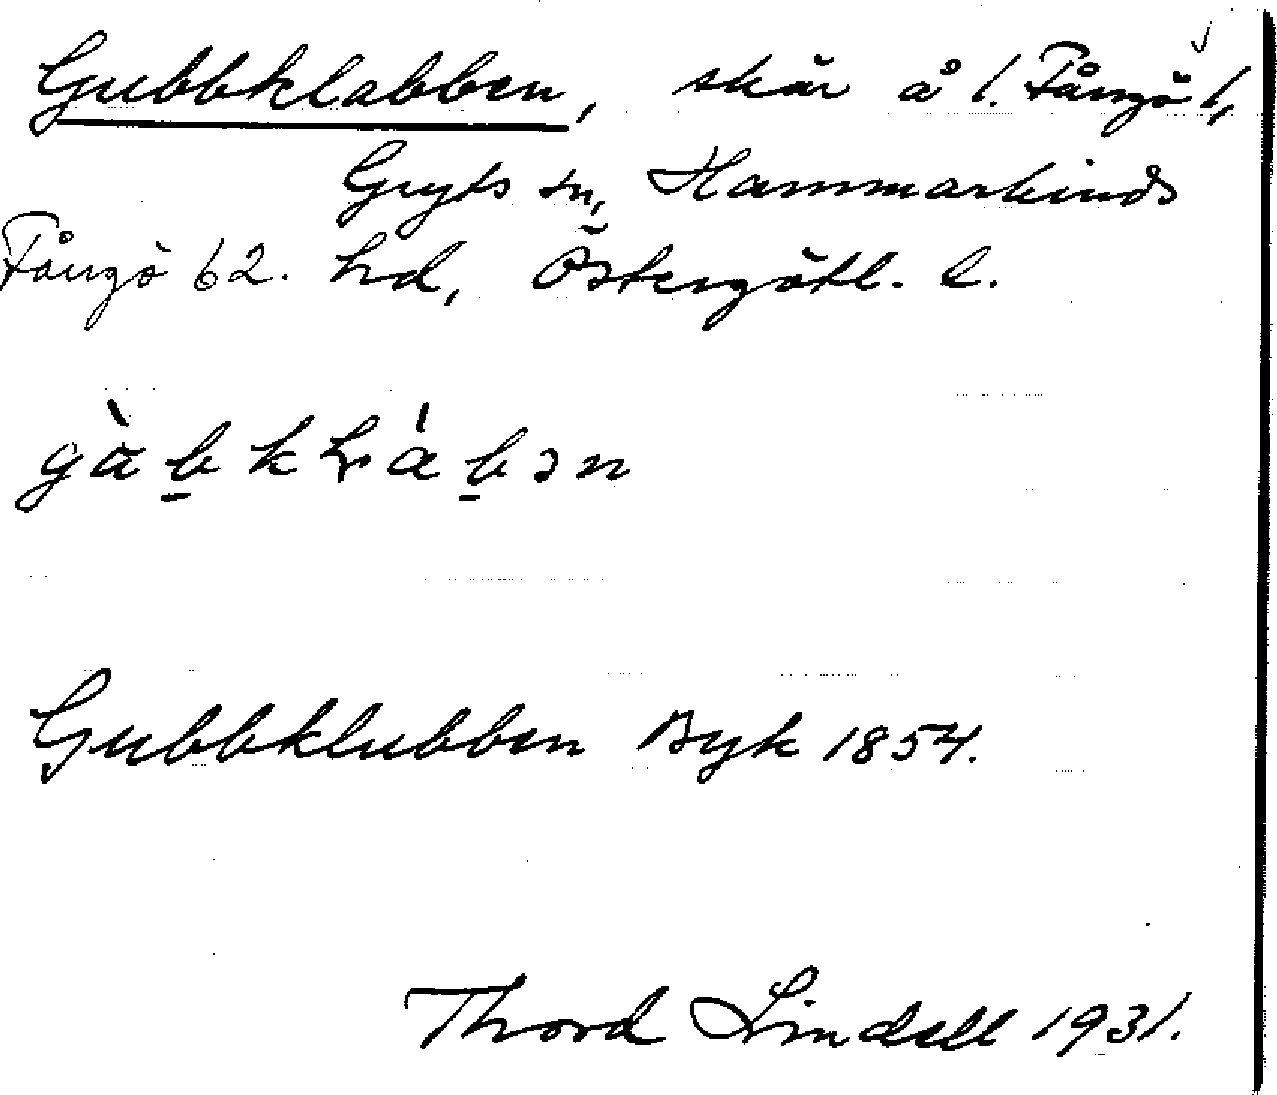 Gubbklabben, skär å l. Fångö l,
Gryts sn, Hammarkinds
Fångö 62. hd, Östergötl. l.
Gubbklubben Byk 1854.
Thord Lindell 1931.